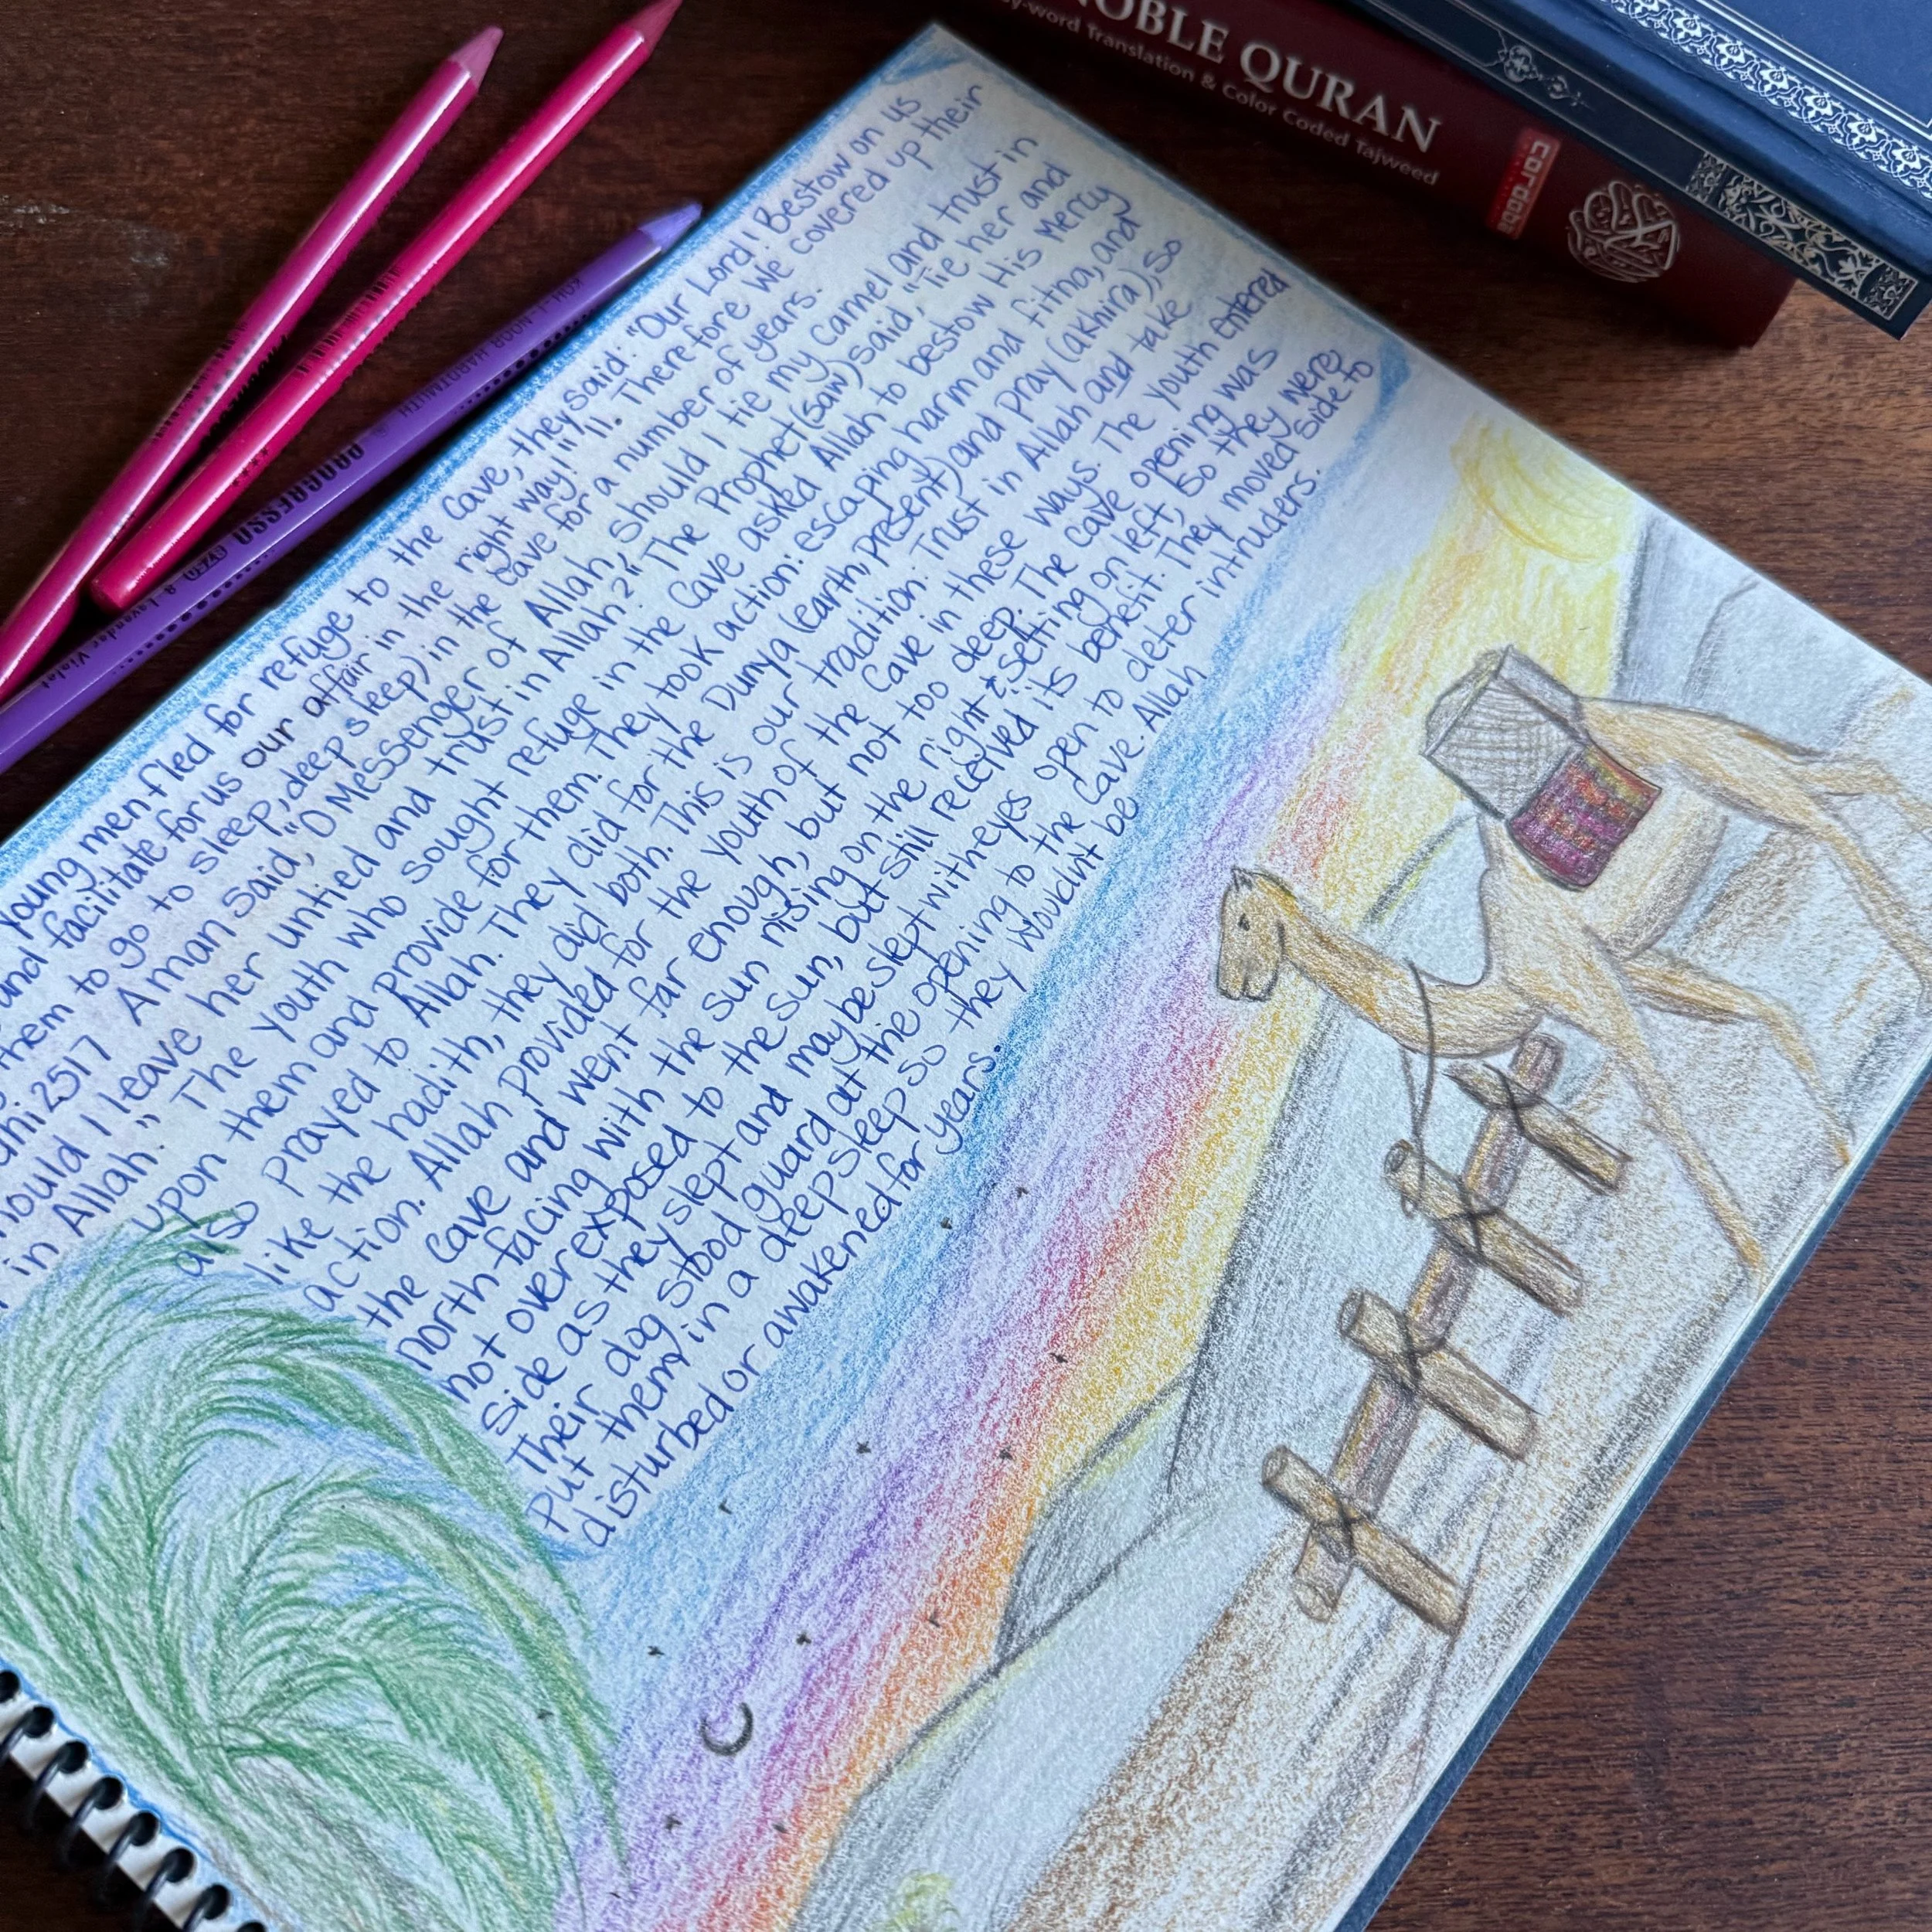 NOBLE QURAN
word Translation & Color Coded Tajweed
young men fled for refuge to the Cave, they said: "Our Lord! Bestow on us
and facilitate for us our affair in the right way!" "11. Therefore We covered up their
them to go to sleep, deep sleep) in the cave for a number of years.
2517 A man said, "O Messenger of Allah, should I tie my Camel and trust in
should I leave her untied and trust in Allah?" The Prophet (saw) said, "Tie her and
in Allah." The youth who sought refuge in the Cave asked Allah to bestow His Mercy
upon them and provide for them. They took action: escaping harm and fitna, and
also prayed to Allah. They did for the Dunya (earth, present) and pray (akhira), so
like the hadith, they did both. This is our tradition. Trust in Allah and take
action. Allah provided for the youth of the Cave in these ways. The youth entered
the Cave and went far enough, but not too deep. The cave opening was
north facing with the sun rising on the right & setting on left, so they were
not over exposed to the sun, but still received its benefit. They moved side to
side as they slept and maybe slept with eyes open to deter intruders.
Their dog stood guard at the opening to the Cave. Allah
put them in a deep sleep so they wouldn't be
disturbed or awakened for years.
KOH-I-NOOR HARDTMUTH
PROGRESSO
Lavender Violet